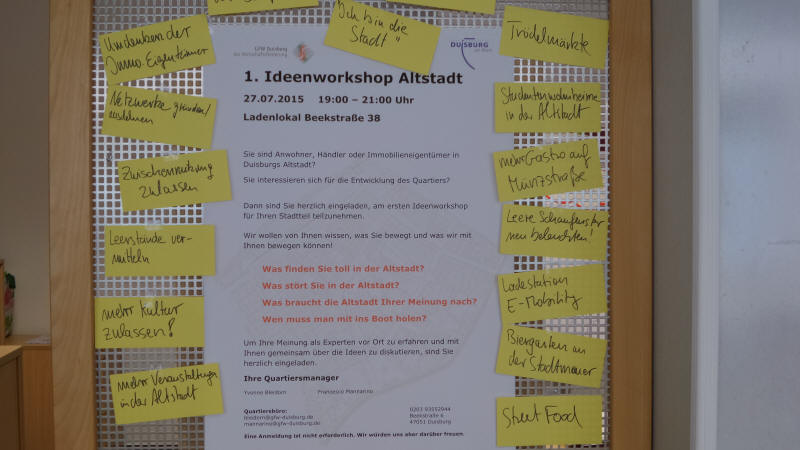 Umdenken der
Immo. Eigentümer
Netzwerke gründen/
ausdehnen
Zwischennutzung
zulassen
Leerstände ver-
mitteln
mehr Kultur
zulassen!
mehr Veranstaltungen
in der Altstadt
"Ich bin die
Stadt"
GFW Duisburg
DUISBURG
am Rhein
1. Ideenworkshop Altstadt
27.07.2015 19:00 – 21:00 Uhr
Ladenlokal Beekstraße 38
Sie sind Anwohner, Händler oder Immobilieneigentümer in
Duisburgs Altstadt?
Sie interessieren sich für die Entwicklung des Quartiers?
Dann sind Sie herzlich eingeladen, am ersten Ideenworkshop
für Ihren Stadtteil teilzunehmen.
Wir wollen von Ihnen wissen, was Sie bewegt und was wir mit
Ihnen bewegen können!
Was finden Sie toll in der Altstadt?
Was stört Sie in der Altstadt?
Was braucht die Altstadt Ihrer Meinung nach?
Wen muss man mit ins Boot holen?
Um Ihre Meinung als Experten vor Ort zu erfahren und mit
Ihnen gemeinsam über die Ideen zu diskutieren, sind Sie
herzlich eingeladen.
Ihre Quartiersmanager
Yvonne Bleidorn Francesco Mannarino
Quartiersbüro:
bleidorn@gfw-duisburg.de
mannarino@gfw-duisburg.de
0203 93552944
Beekstraße 6
47051 Duisburg
Eine Anmeldung ist nicht erforderlich. Wir würden uns aber darüber freuen.
Trödelmärkte
Studentenwohnheime
in der Altstadt
mehr Gastro auf
Münzstraße
Leere Schaufenster
neu beleuchten!
Ladestation
E-Mobility
Biergarten an
der Stadtmauer
Street Food